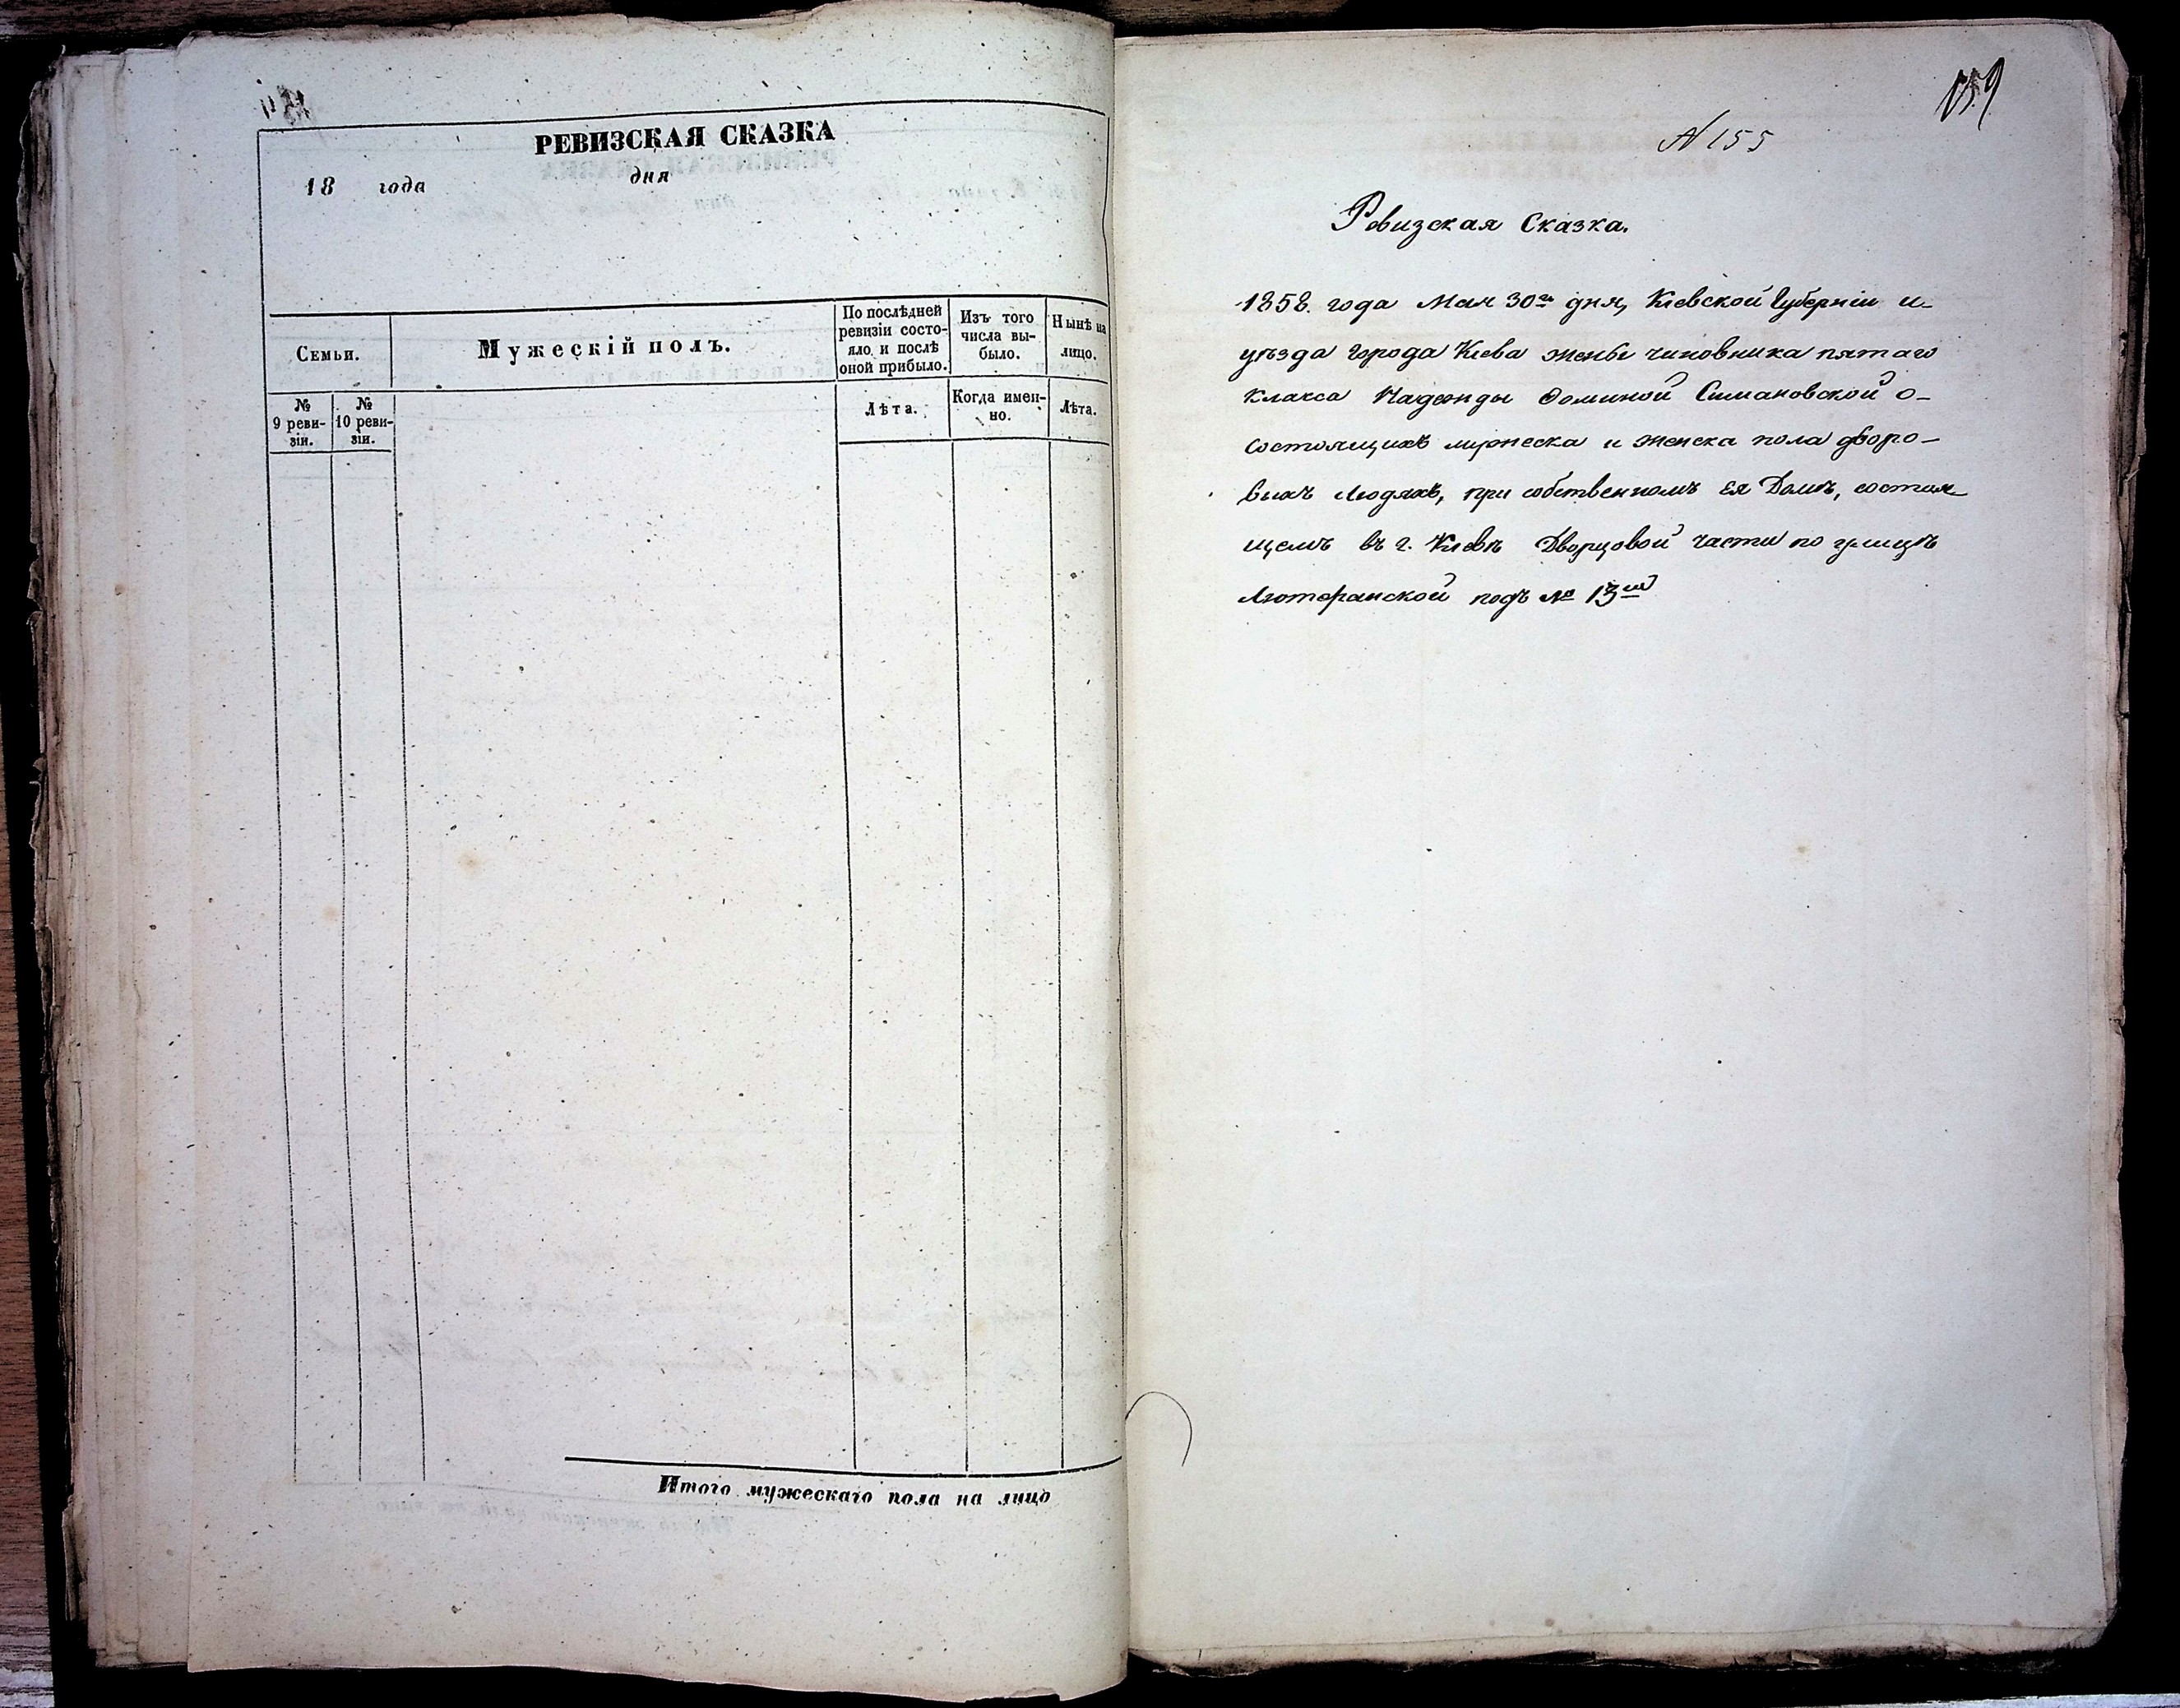 РЕВИЗСКАЯ СКАЗКА
18 года дня
Семьи.
Мужескій полъ.
По послѣдней
ревизіи состо-
яло и послѣ
оной прибыло.
Изъ того
числа вы-
было.
Нынѣ на
лицо.
№
9 реви-
зіи.
№
10 реви-
зіи.
Лѣта.
Когда имен-
но.
Лѣта.
Итого мужескаго пола на лицо
159
N 155
Ревизская Сказка.
1858. года Мая 30го дня, Кіевской Губерніи и-
уѣзда города Кіева жены чиновника пятаго
класса Надежды Фоминой Симановской о-
состоящихъ мужеска и женска пола дворо-
выхъ людяхъ, при собственномъ Ея Домѣ, состоя-
щемъ въ г. Кіевѣ Дворцовой части по улицѣ
Лютеранской подъ № 13ш